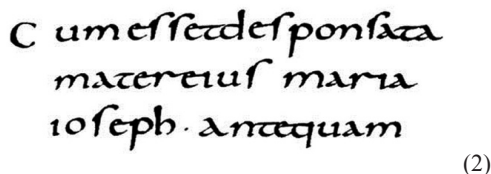 C umeſſetdeſponſata
matereiuſ maria
ioſeph · antequam
(2)